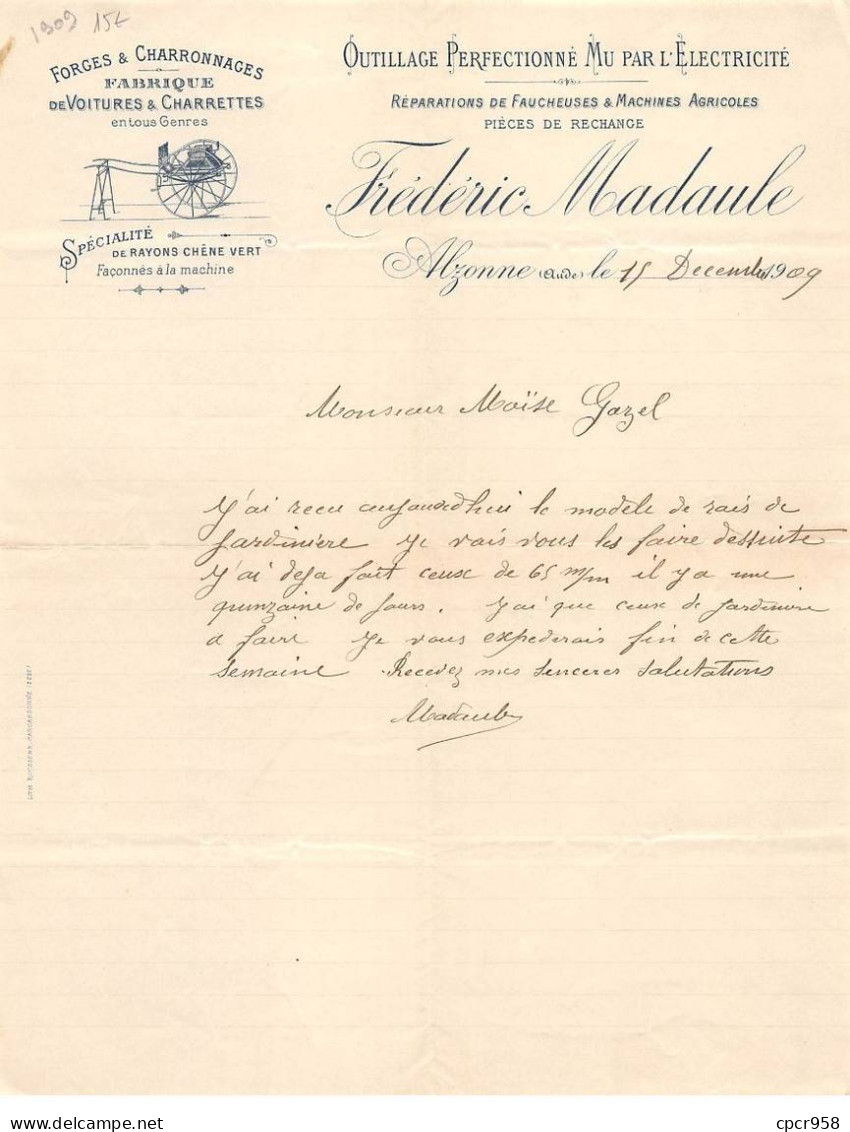 1909 15€
FORGES & CHARRONNAGES
FABRIQUE
DE VOITURES & CHARRETTES
en tous Genres
SPÉCIALITÉ
DE RAYONS CHÊNE VERT
Façonnés à la machine
OUTILLAGE PERFECTIONNÉ MU PAR L'ELECTRICITÉ
RÉPARATIONS DE FAUCHEUSES & MACHINES AGRICOLES
PIÈCES DE RECHANGE
Frédéric Madaule
Alzonne (Aude) le 15 Decembre 1909
Monsieur Moïse Gazel
J'ai recu aujourd'hui le modele de rais de
Jardiniere Je vais vous les faire dessuite
J'ai deja fait ceux de 65 m/m il y a une
quinzaine de Jours. J'ai que ceux de Jardiniere
a faire Je vous expederais fin de cette
semaine Recevez mes sinceres salutations
Madaule
cpcr958